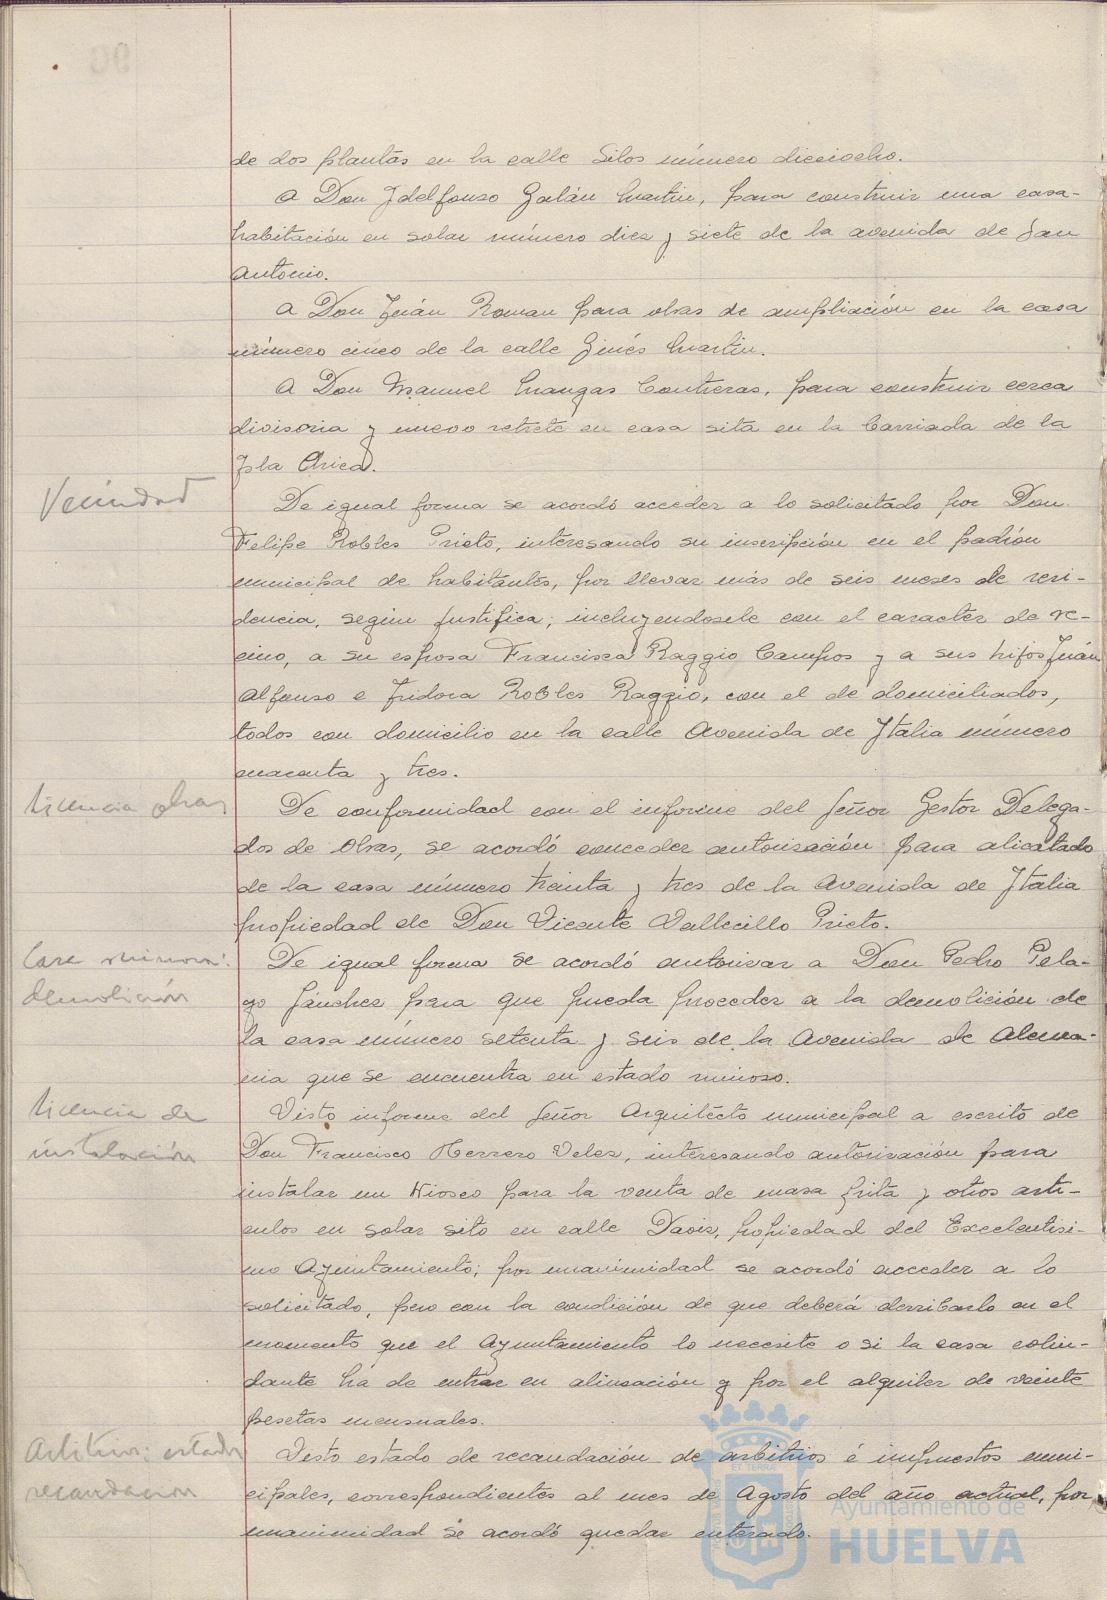 de dos plantas en la calle Silos número dieciocho.
A Don Ildelfonso Galán Martin, para construir una casa-
habitación en solar número diez y siete de la avenida de San
Antonio.
A Don Juán Roman para obras de ampliación en la casa
número cinco de la calle Ginés Martin.
A Don Manuel Mangas Contreras, para construir cerca
divisoria y nuevo retrete en casa sita en la barriada de la
Isla Chica.
Vecindad
De igual forma se acordó acceder a lo solicitado por Don
Felipe Robles Prieto, interesando su inscripción en el padrón
municipal de habitantes, por llevar más de seis meses de resi-
dencia, según justifica; incluyendosele con el caracter de ve-
cino, a su esposa Francisca Raggio Campos y a sus hijos Juán
Alfonso e Isidora Robles Raggio, con el de domiciliados,
todos con domicilio en la calle Avenida de Italia número
cuarenta y tres.
Licencia obras
De conformidad con el informe del Señor Gestor Delega-
dos de Obras, se acordó conceder autorización para alicatado
de la casa número treinta y tres de la Avenida de Italia
propiedad de Don Vicente Vallecillo Prieto.
Casa ruinosa:
demolición
De igual forma se acordó autorizar a Don Pedro Pela-
go Sánchez para que pueda proceder a la demolición de
la casa número setenta y seis de la Avenida de Alema-
nia que se encuentra en estado ruinoso.
Licencia de
instalación
Visto informe del Señor Arquitécto municipal a escrito de
Don Francisco Herrero Velez, interesando autorización para
instalar un Kiosco para la venta de masa frita y otros arti-
culos en solar sito en calle Davis, propiedad del Excelentisi-
mo Ayuntamiento; por unanimidad se acordó acceder a lo
solicitado, pero con la condición de que deberá derribarlo en el
momento que el Ayuntamiento lo necesite o si la casa colin-
dante ha de entrar en alineación y por el alquiler de veinte
pesetas mensuales.
Arbitrios: estado
recaudacion
Visto estado de recaudación de arbitrios é impuestos muni-
cipales, correspondientes al mes de Agosto del año actual, por
unanimidad se acordó quedar enterado.
Ayuntamiento de
HUELVA